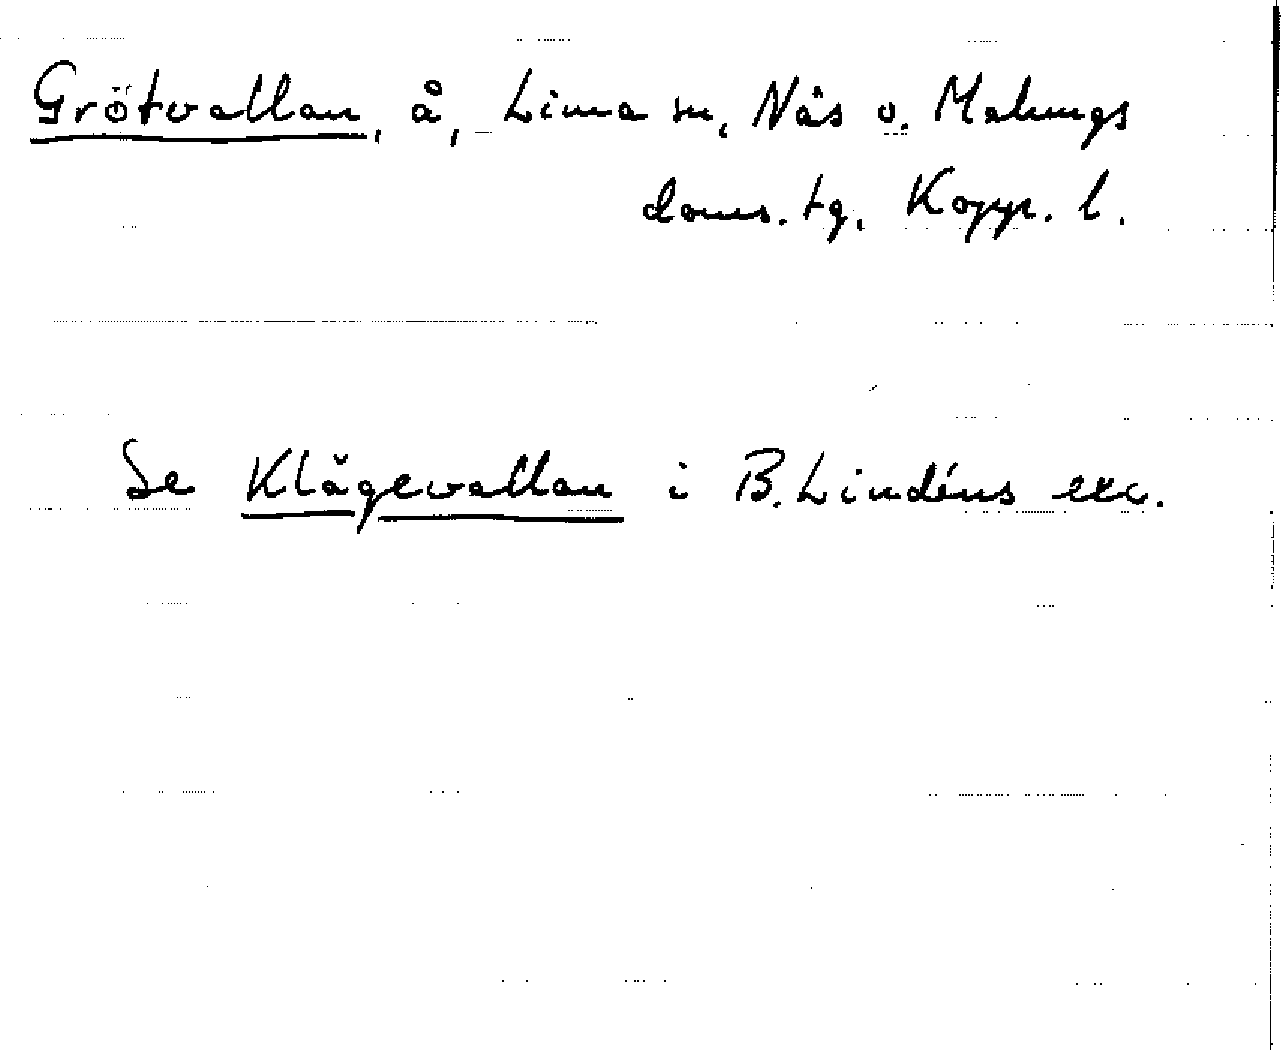 Grötvallan, å, Lima sn, Nås o. Malungs
doms. tg. Kopp. l.
Se Klågevallan i B. Lindéns exc.